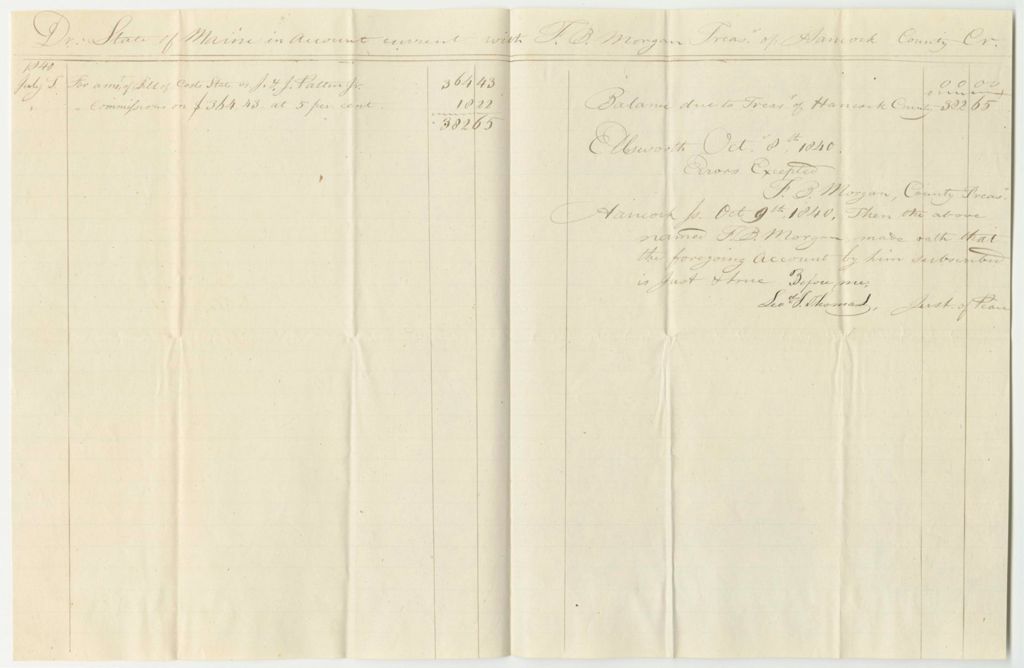 Dr. State of Maine in account current with T. B. Morgan Treas. of Hancock County Cr.
1840
July 1. For amt. of Bill of Cost State vs J. & J. Patten Jr. 364 43
" " Commissions on $364.43 at 5 per cent. 18 22
38265
00 00
Balance due to Treasr. of Hancock County 382 65
Ellsworth Oct. 8th 1840.
Errors Excepted
T. B. Morgan, County Treasr.
Hancock ss. Oct 9th 1840. Then the above
named T. B. Morgan made oath that
the foregoing account by him subscribed
is Just & true Before me,
Thomas, Just. of Peace